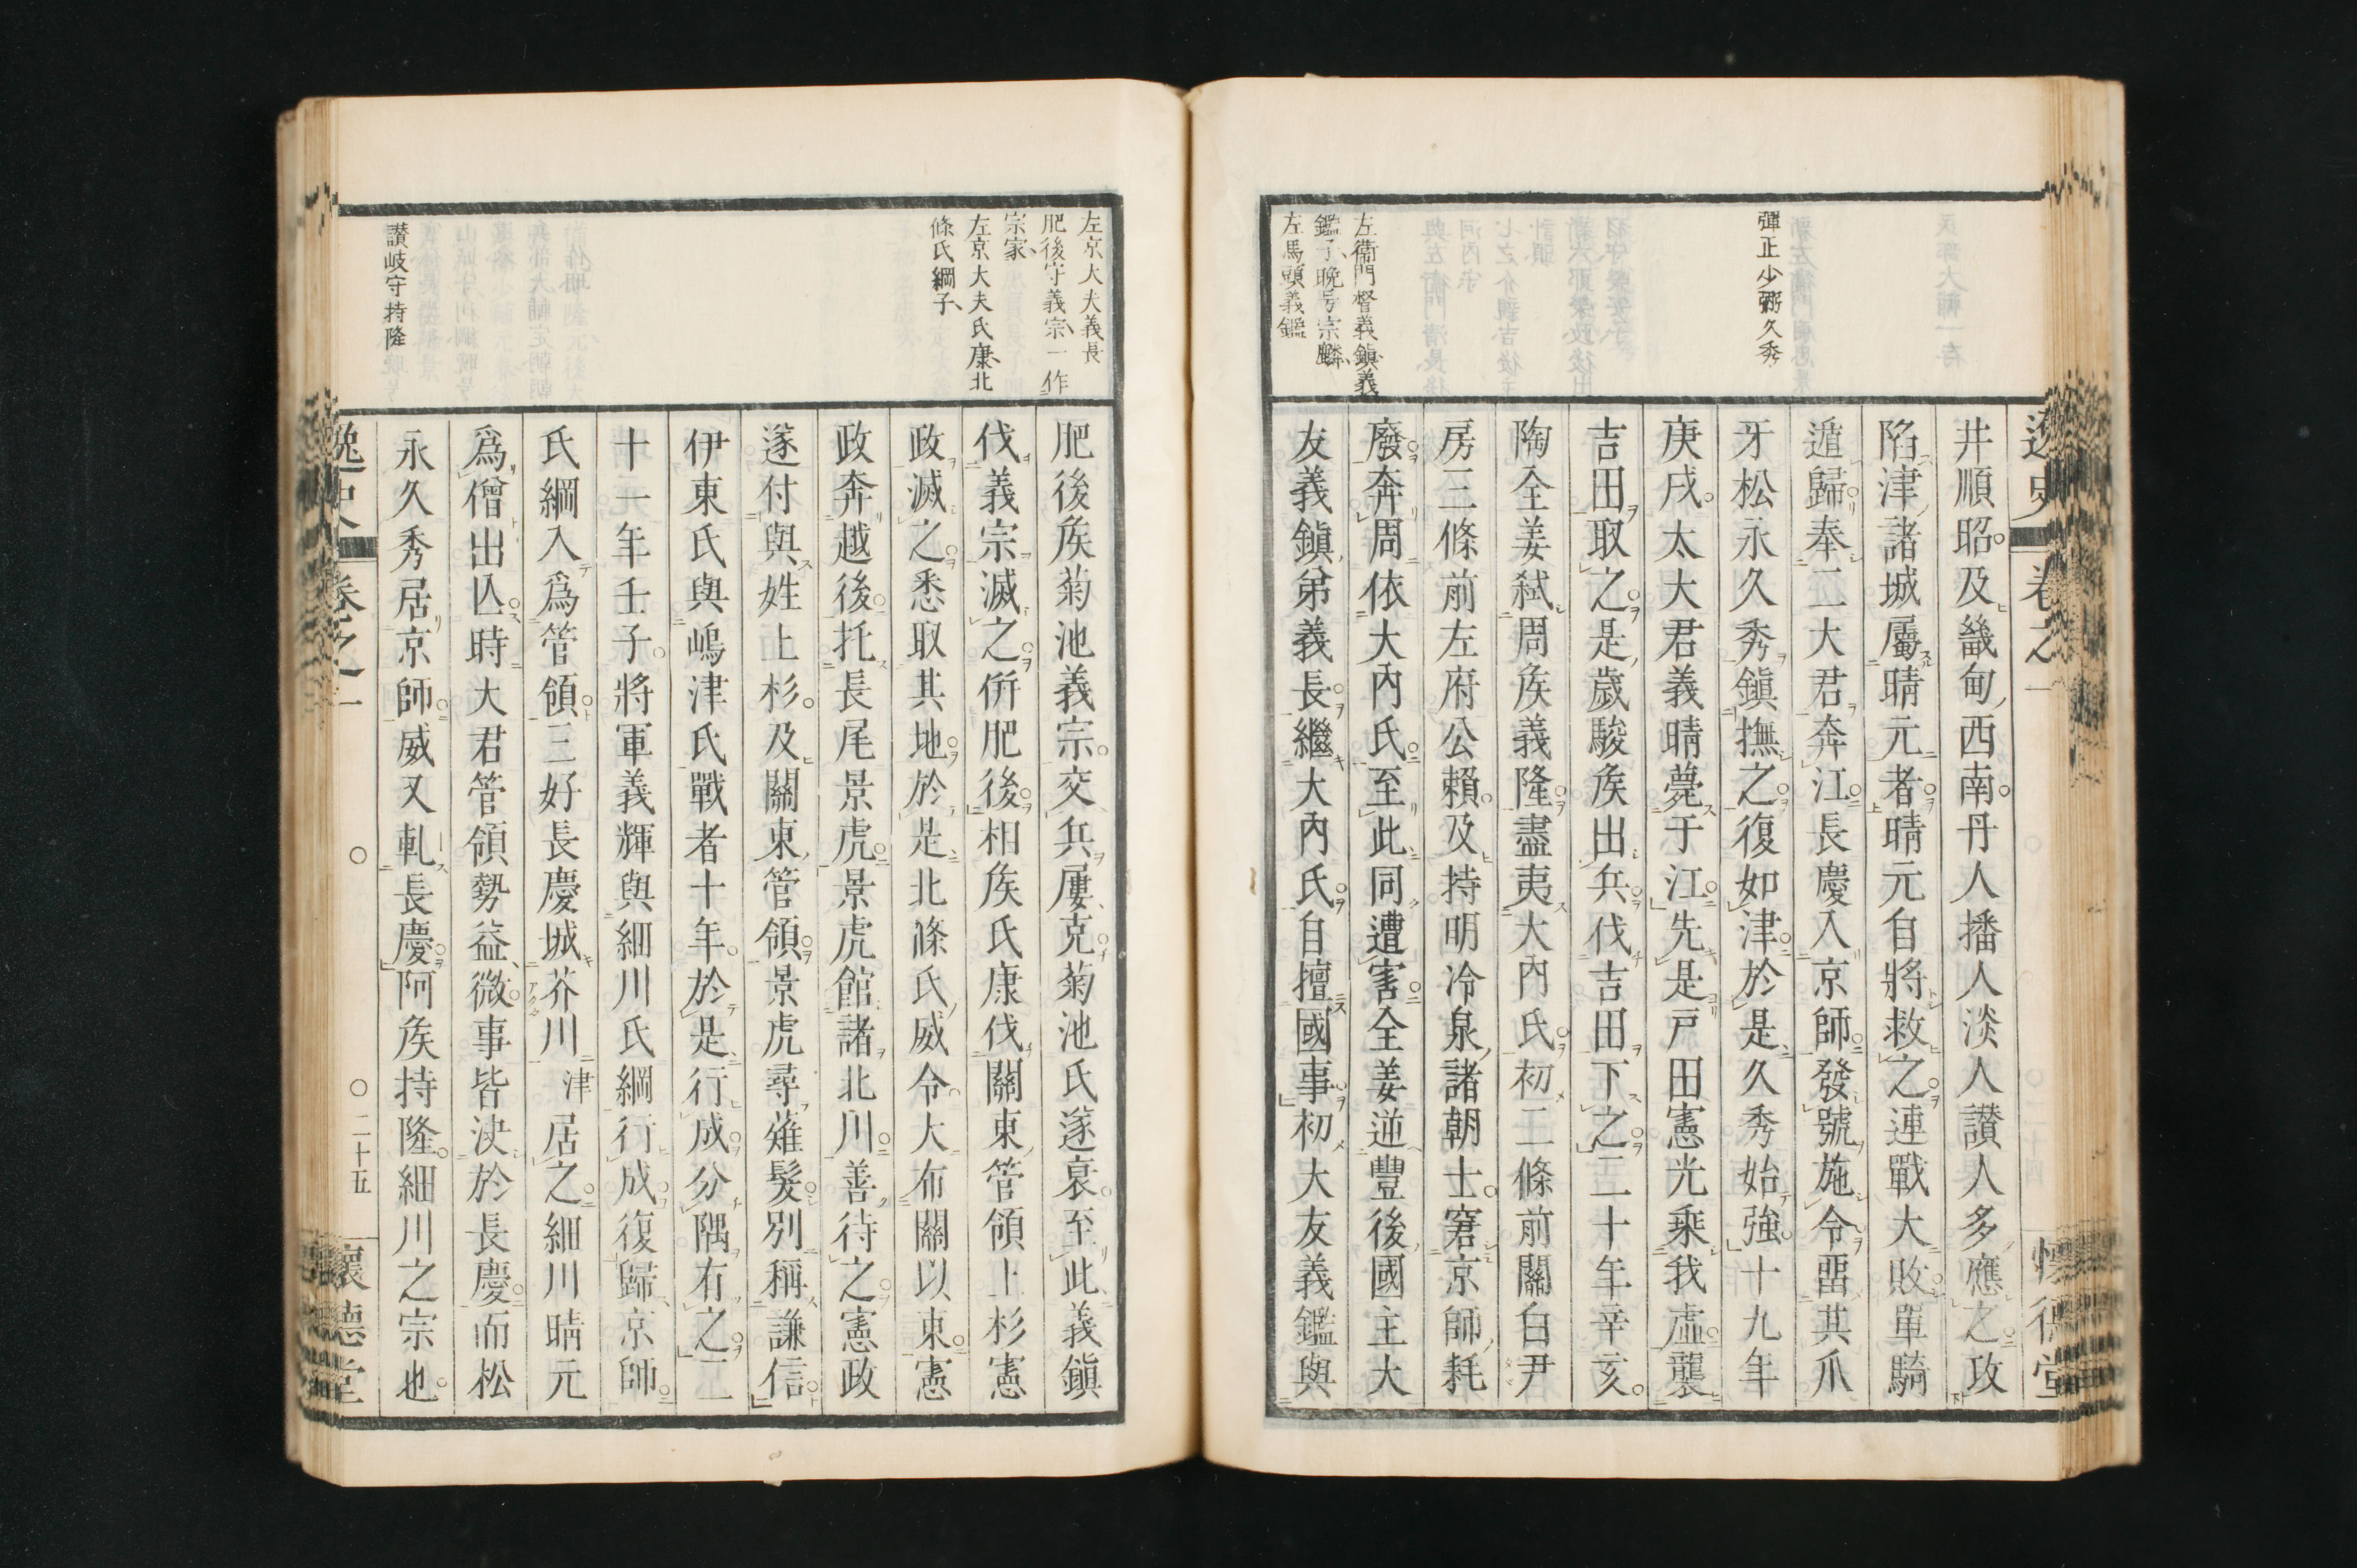 逸史 卷之一 懷德堂
彈正少弼久秀
左衛門督義鎭義
鑑子、晚号宗麟、
左馬頭義鑑
井順昭。及畿甸西南。丹人播人淡人讃人多應之。攻
陷津諸城屬晴元者。晴元自將救之。連戰大敗。單騎
遁歸。奉二大君奔江。長慶入京師。發號施令。畱其爪
牙松永久秀鎭撫之。復如津。於是久秀始強。十九年
庚戌。太大君義晴薨于江。先是戸田憲光乘我虛。襲
吉田取之。是歲駿矦出兵。伐吉田下之。二十年辛亥。
陶全姜弑周矦義隆。盡夷大內氏。初二條前關白尹
房三條前左府公賴。及持明冷泉諸朝士。窘京師耗
廢。奔周依大內氏。至此同遭害。全姜逆豐後國主大
友義鎭弟義長。繼大內氏。自擅國事。初大友義鑑與
左京大夫義長
肥後守義宗、一作
宗家、
左京大夫氏康、北
條氏綱子、
讃岐守持隆
肥後矦菊池義宗。交兵屢克。菊池氏遂衰。至此義鎭
伐義宗滅之。併肥後。相矦氏康伐關東管領上杉憲
政滅之。悉取其地。於是北條氏威令。大布關以東。憲
政奔越後。托長尾景虎。景虎館諸北川。善待之。憲政
遂付與姓上杉。及關東管領。景虎尋薙髮。別稱謙信。
伊東氏與嶋津氏戰者十年。於是行成。分隅有之。二
十一年壬子。將軍義輝與細川氏綱行成。復歸京師。
氏綱入爲管領。三好長慶城芥川津居之。細川晴元
爲僧出亾。時大君管領勢益微。事皆決於長慶。而松
永久秀居京師。威又軋長慶。阿矦持隆。細川之宗也。
逸史 卷之一 〇 〇二十五 懷德堂